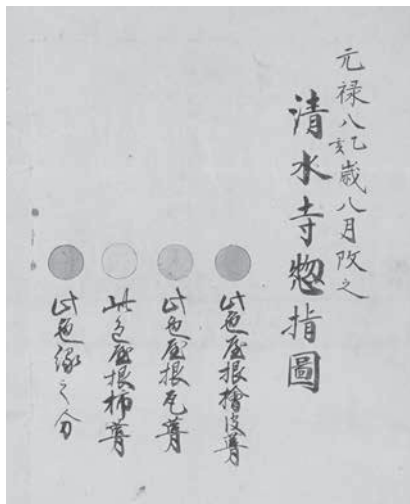 元禄八乙亥歳八月改之
清水寺惣指圖
此色屋根檜皮葺
此色屋根瓦葺
此色屋根杮葺
此色縁之分